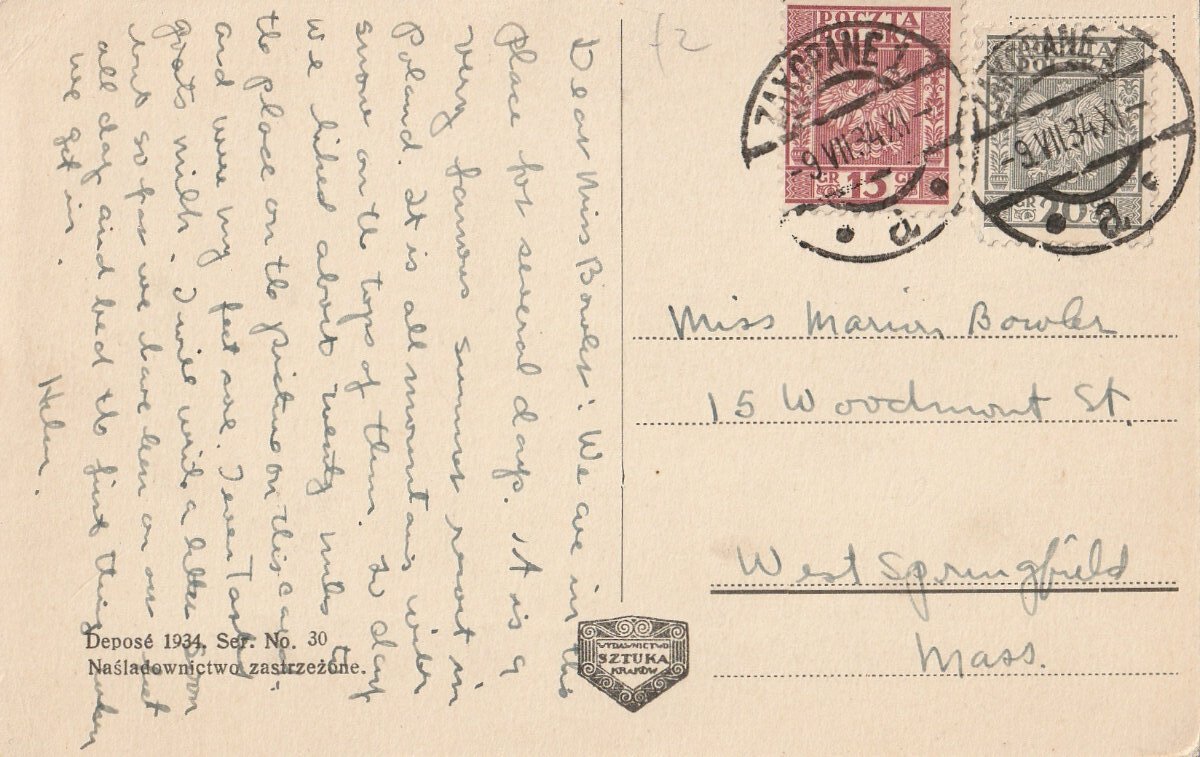 Dear Miss Bowler: We are in this
place for several days. It is a
very famous summer resort in
Poland. It is all mountains with
snow on the tops of them. To day
we hiked about twenty miles to
the place on the picture on this card
and were my feet sore. I even Tasted
goats milk. I will write a letter soon
but so far we have been on our feet
all day and bed the first thing when
we get in.
Helen.
Deposé 1934, Ser. No. 30
Naśladownictwo zastrzeżone.
WYDAWNICTWO
SZTUKA
KRAKÓW
POCZTA
POLSKA
GR 15 GR
ZAKOPANE 1
-9.VII.34.XI-
a
POLSKA
GR 20 GR
ZAKOPANE 1
-9.VII.34.XI-
a
Miss Marion Bowler
15 Woodmont St.
West Springfield
Mass.